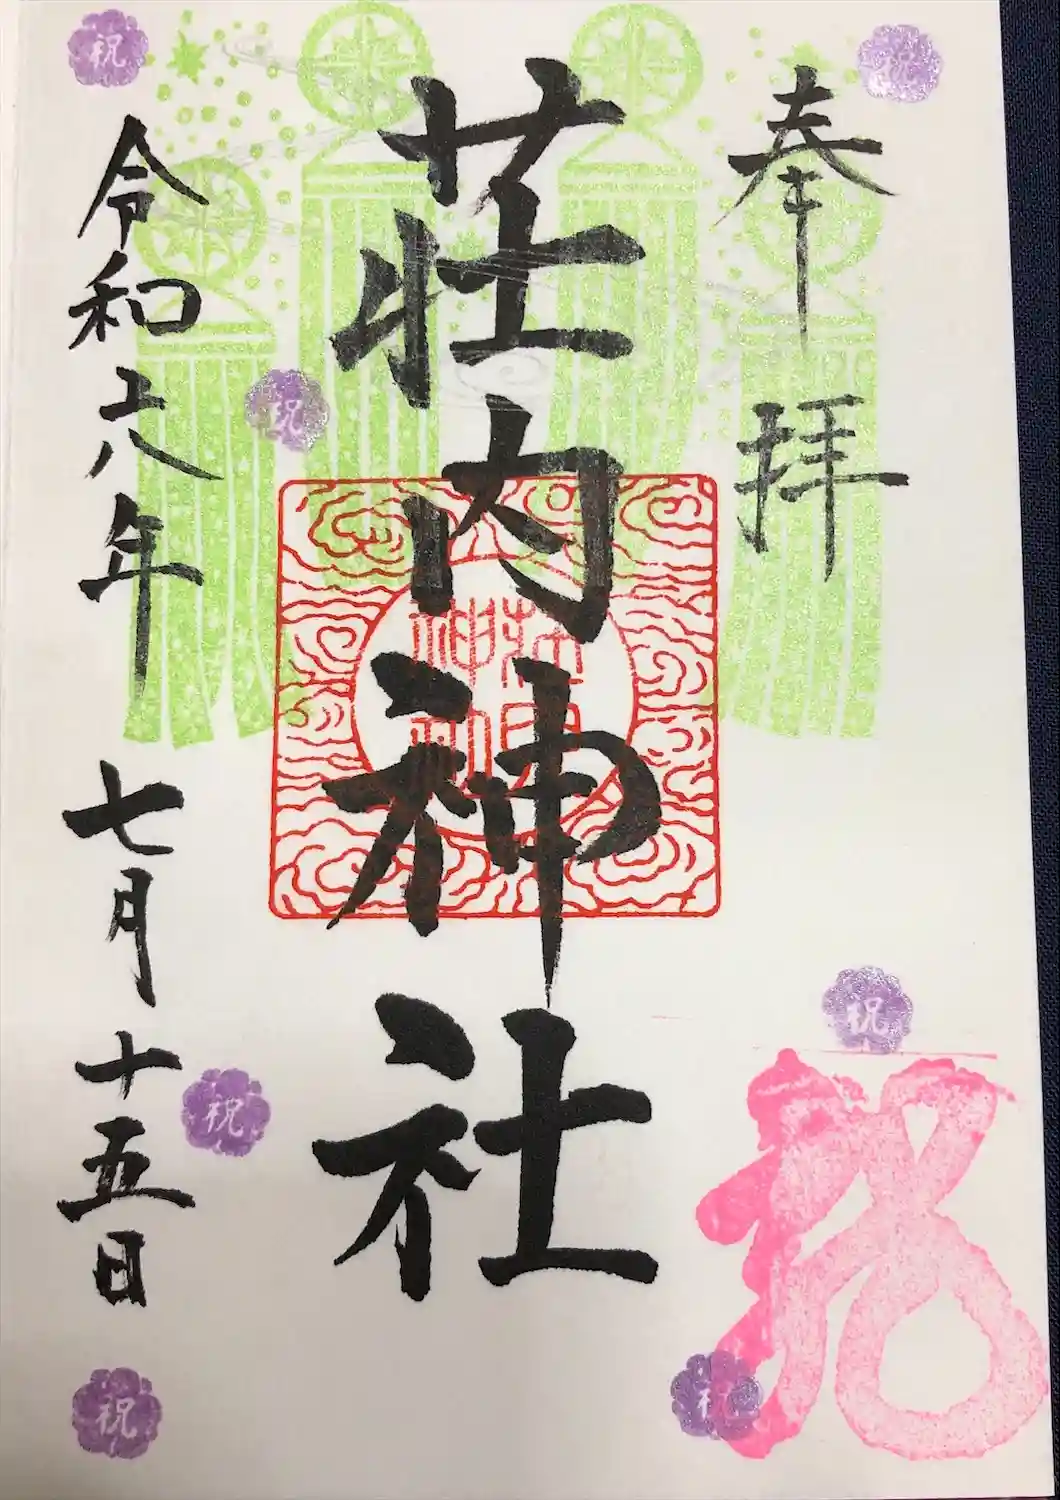 奉拝
荘内神社
令和六年七月十五日
荘内
神社
祝
祝
祝
祝
祝
祝
祝